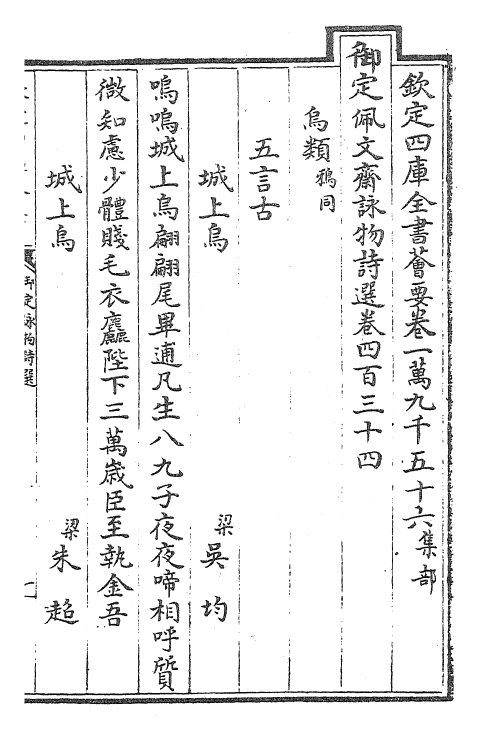 欽定四庫全書薈要卷一萬九千五十六集部
御定佩文齋詠物詩選卷四百三十四
烏類鴉同
五言古
城上烏 梁吳均
嗚嗚城上烏翩翩尾畢逋凡生八九子夜夜啼相呼質
微知慮少體賤毛衣麤陛下三萬歲臣至執金吾
城上烏 梁朱超
御定詠物詩選 一